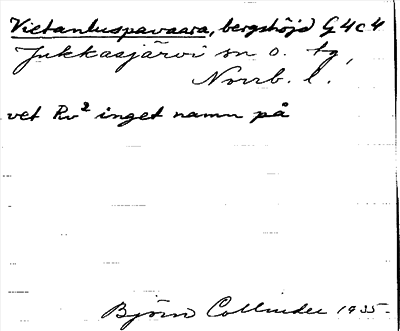 Vietanluspavaara, bergshöjd G4c4
Jukkasjärvi sn o. tg,
Norrb. l.
vet Rv² inget namn på
Björn Collinder 1935.